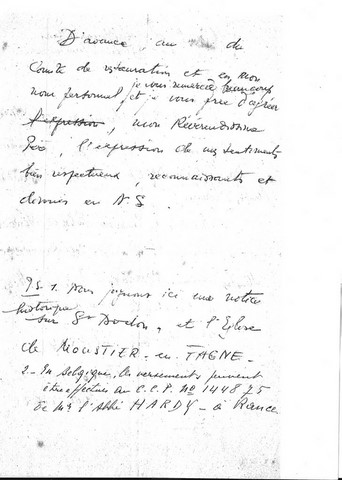 D'avance, au du
Comité de restauration et en mon
je vous remercie beaucoup
nom personnel, et je vous prie d'agréer
l'expression, mon Révérendissime
l'expression de mes sentiments
bien respectueux, reconnaissants et
dévoués en N.S.
P.S. 1. Nous joignons ici une notice
historique
sur St Dodon, et l'Eglise
de MOUSTIER-en-FAGNE-
2- En Belgique, les versements peuvent
être effectués au C.C.P. No 144875
de Mr l'Abbé HARDY - à Rance